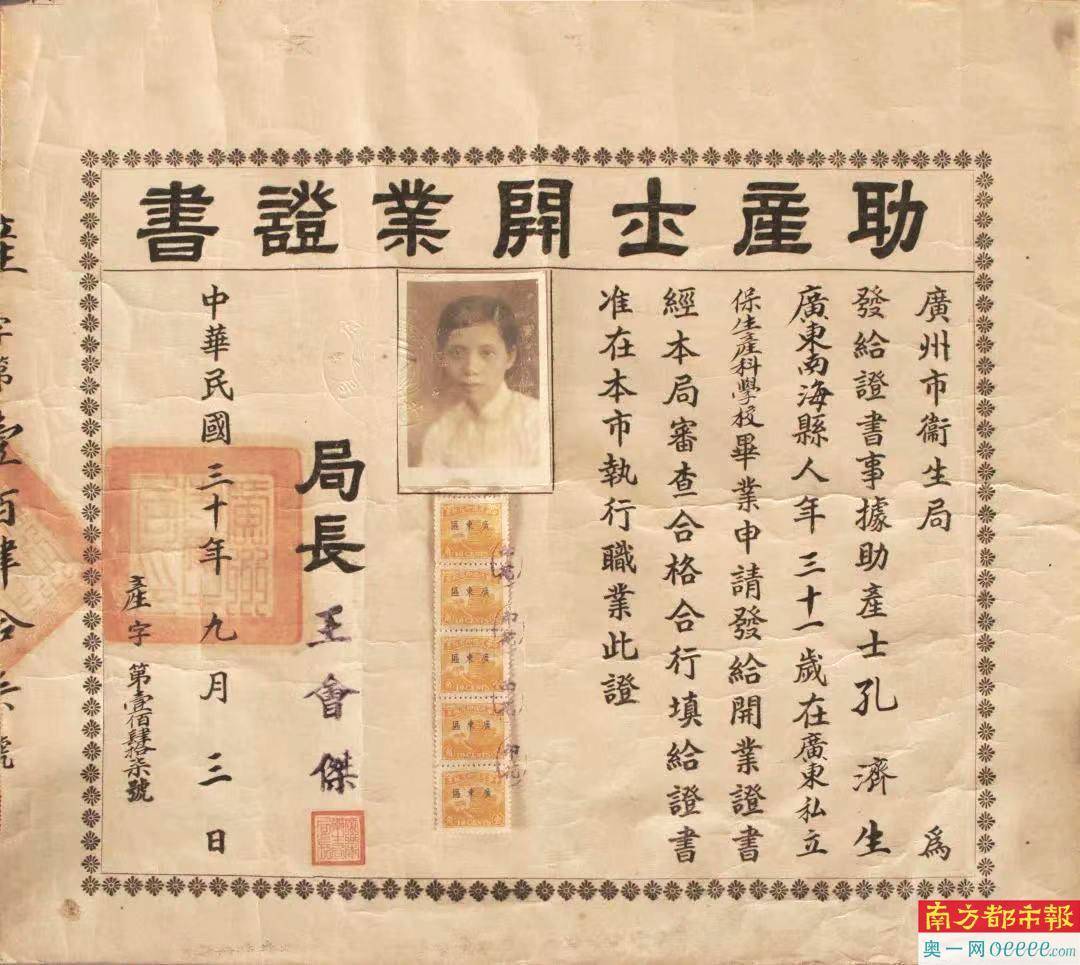 助產士開業證書
廣州市衞生局為
發給證書事據助產士孔濟生
廣東南海縣人年三十一歲在廣東私立
保生產科學校畢業申請發給開業證書
經本局審查合格合行填給證書
准在本市執行職業此證
局長王會傑
中華民國三十年九月三日
產字第壹佰肆拾柒號
廣東區
廣東區
廣東區
廣東區
廣東區
南方都市報
奥一网oeeee.com